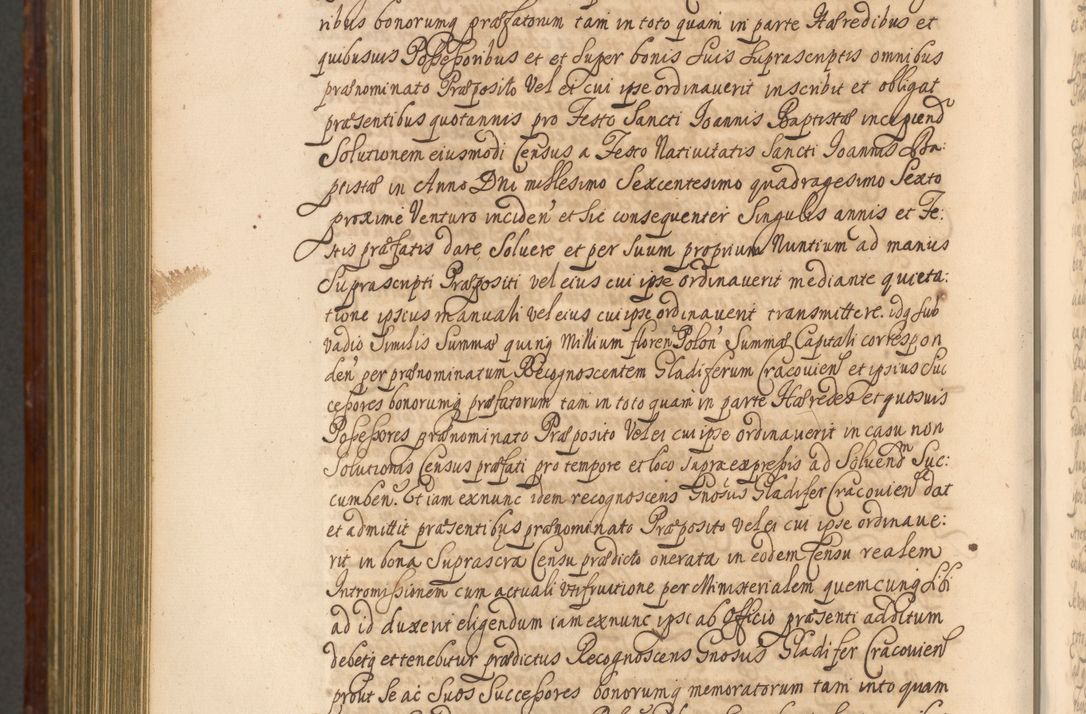 ribus bonorumq præfatorum tam in toto quam in parte Hæredibus et
quibusuis Possessoribus et et super bonis suis suprascriptis omnibus
prænominato Præposito vel ei cui ipse ordinauerit inscribit et obligat
præsentibus quotannis pro Festo Sancti Joannis Baptistæ incipiend
Solutionem eiusmodi Census a Festo Natiuitatis Sancti Joannis Ba:
ptistæ in Anno Dni millesimo Sexcentesimo quadragesimo Sexto
proximè Venturo inciden et sic consequenter Singulis annis et Fe:
stis præfatis dare Soluere et per suum proprium Nuntium ad manus
Suprascripti Præpositi vel eius cui ipse ordinauerit mediante quieta:
tione ipsius manuali vel eius cui ipse ordinauerit transmittere. idq sub
vadio Similis Summæ quinq Millium floren Polon Summæ Capitali correspon
den per prænominatum Recognoscentem Gladiferum Cracouien et ipsius Suc
cessores bonorumq præfatorum tam in toto quam in parte Hæredes et quosuis
Possessores prænominato Præposito vel ei cui ipse ordinauerit in casu non
Solutionis Census præfati pro tempore et loco supra expressis ad Soluendm Suc:
cumben. Et iam exnunc idem recognoscens Gnosus Gladifer Cracouien dat
et admittit præsentibus prænominato Præposito vel ei cui ipse ordinaue:
rit in bona Suprascra Censu prædicto onerata in eodem Censu realem
Intromissionem cum actuali vsufruitione per Ministerialem quemcunq Sibi
ad id duxerit eligendum iam exnunc ipsi ab Officio præsenti additum
debetq et tenebitur prædictus Recognoscens Gnosus Gladifer Cracouien
prout se ac Suos Successores bonorumq memoratorum tam in toto quam